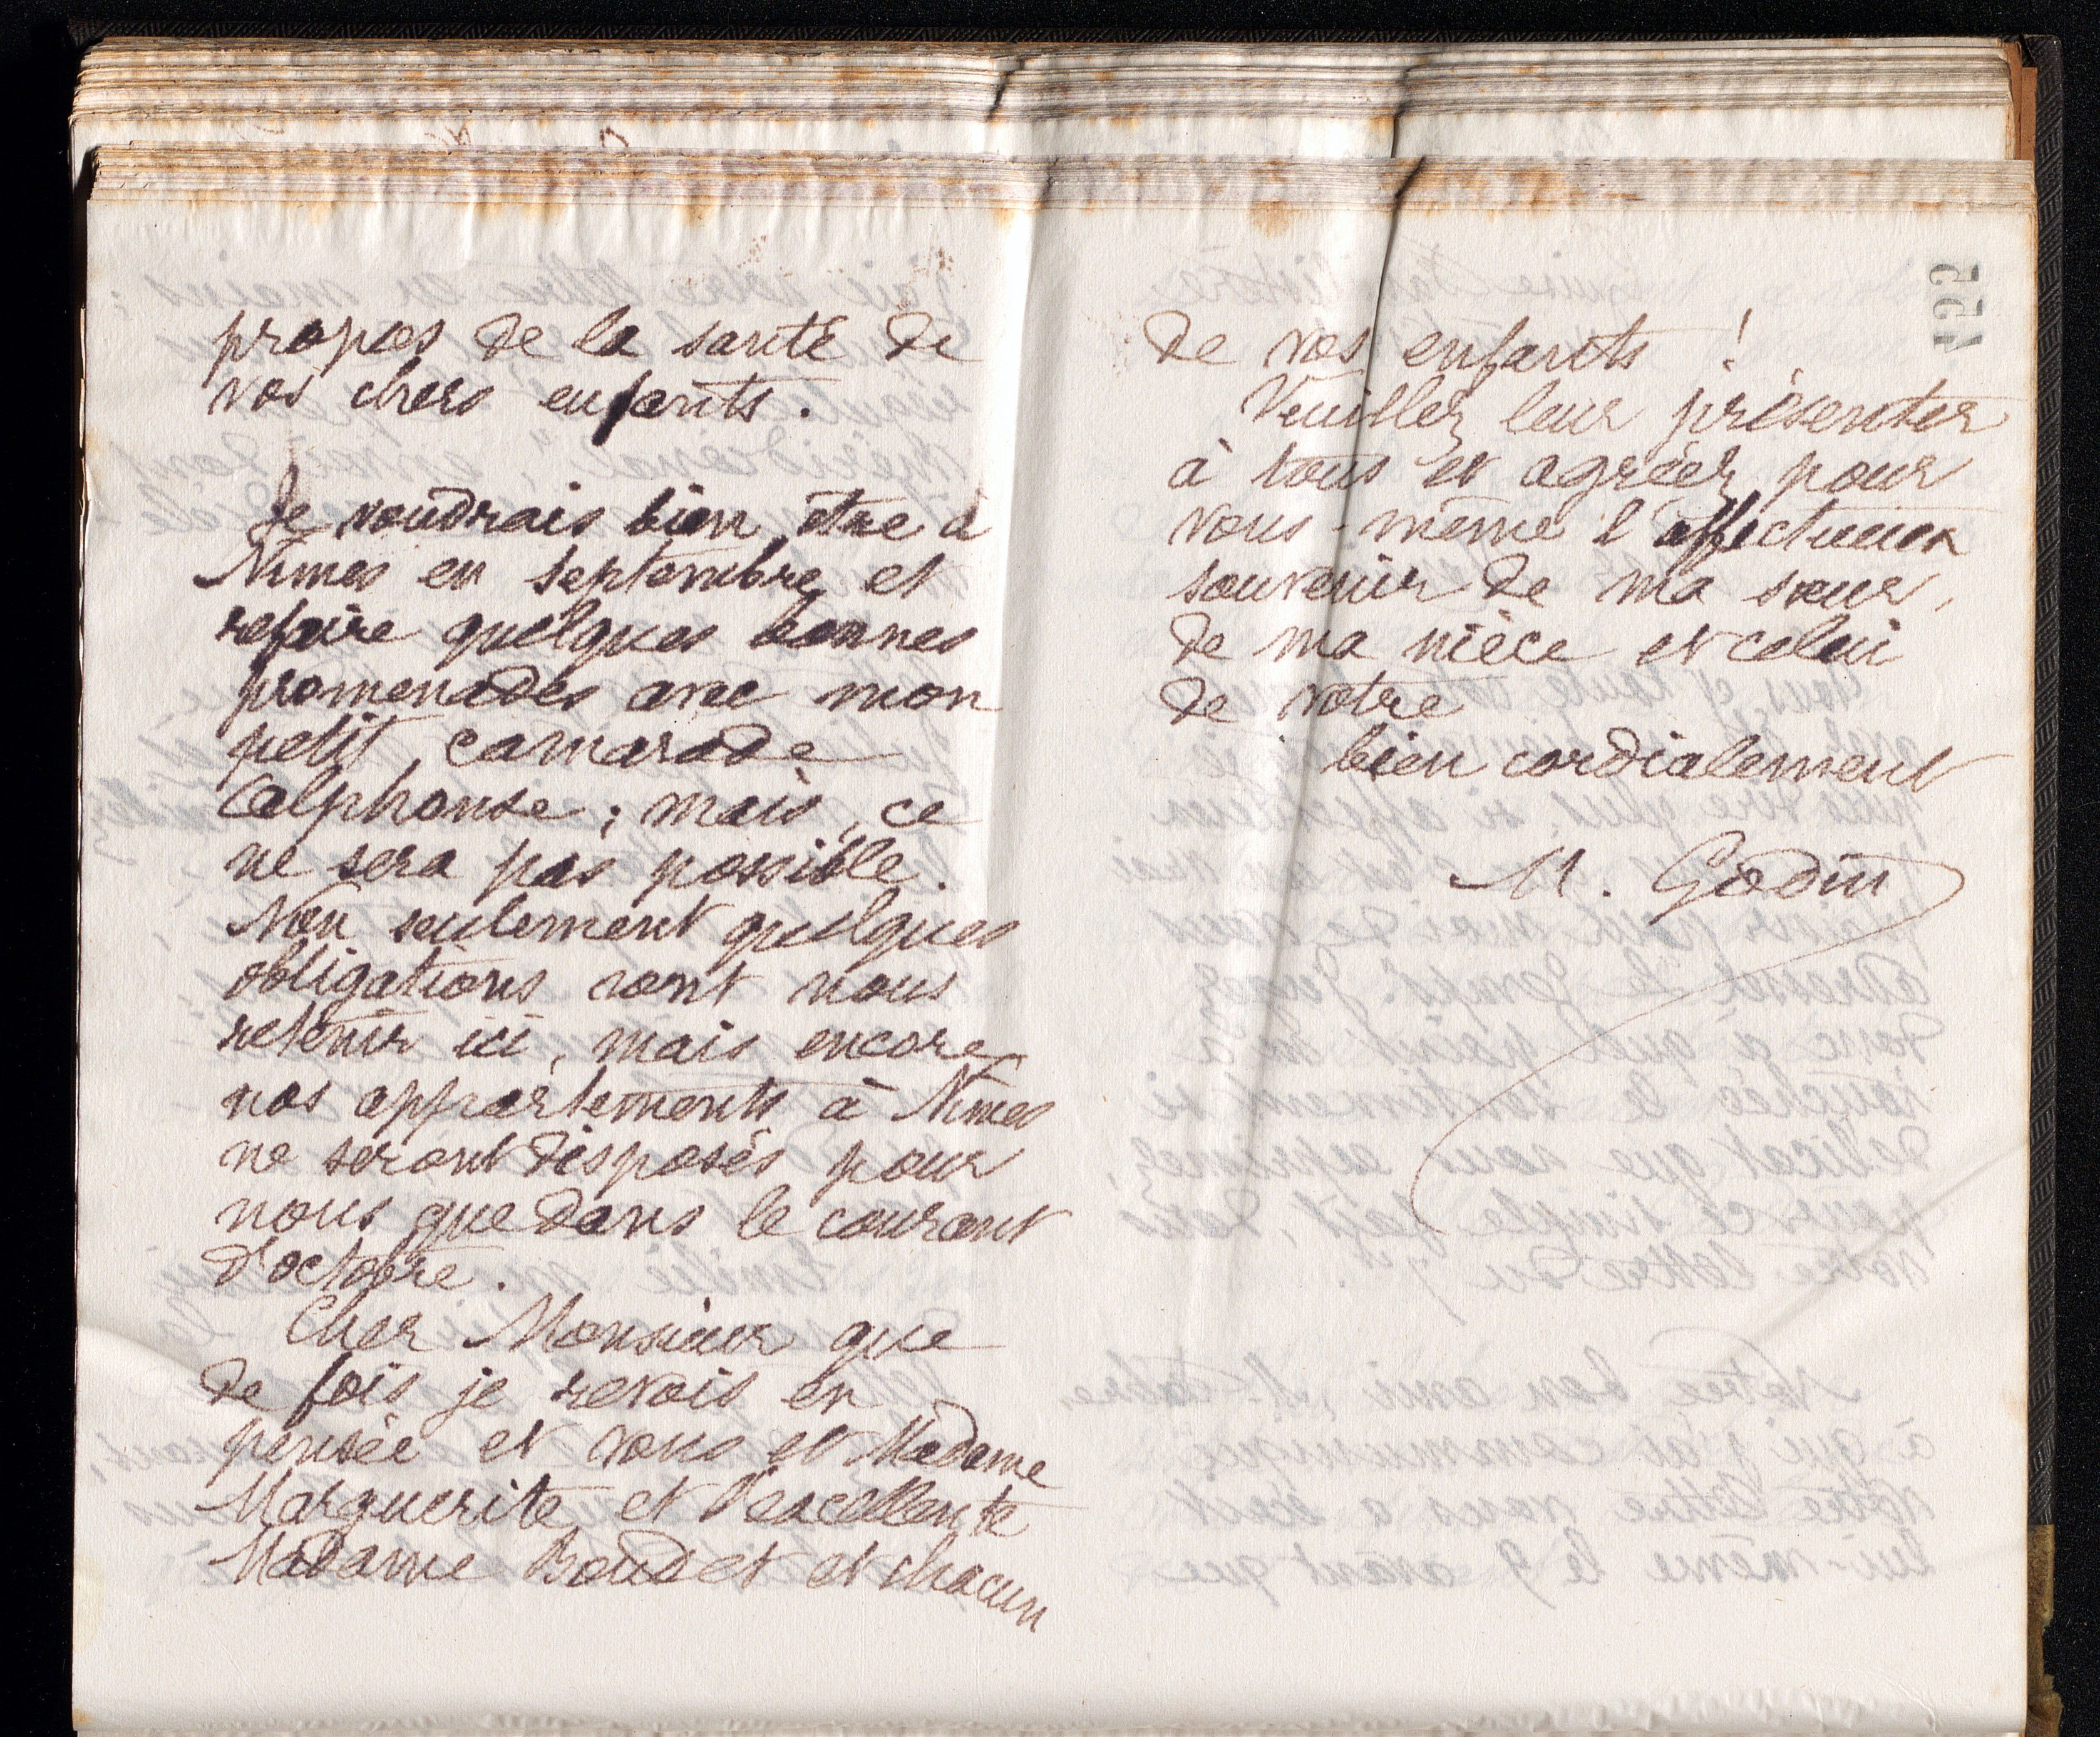 propos de la santé de
vos chers enfants.
Je voudrais bien être à
Nîmes en septembre et
refaire quelques bonnes
promenades avec mon
petit camarade
Calphonse ; mais, ce
ne sera pas possible.
Non seulement quelques
obligations vont nous
retenir ici, mais encore
nos appartements à Nîmes
ne seront disposés pour
nous que dans le courant
d'octobre.
Cher Monsieur que
de fois je revois en
pensée et vous et Madame
Marguerite et l'excellente
Madame Boudet et chacun
de vos enfants !
Veuillez leur présenter
à tous et agréer pour
vous-même l'affectueux
souvenir de ma sœur,
de ma nièce et celui
de votre
bien cordialement
M. Godin